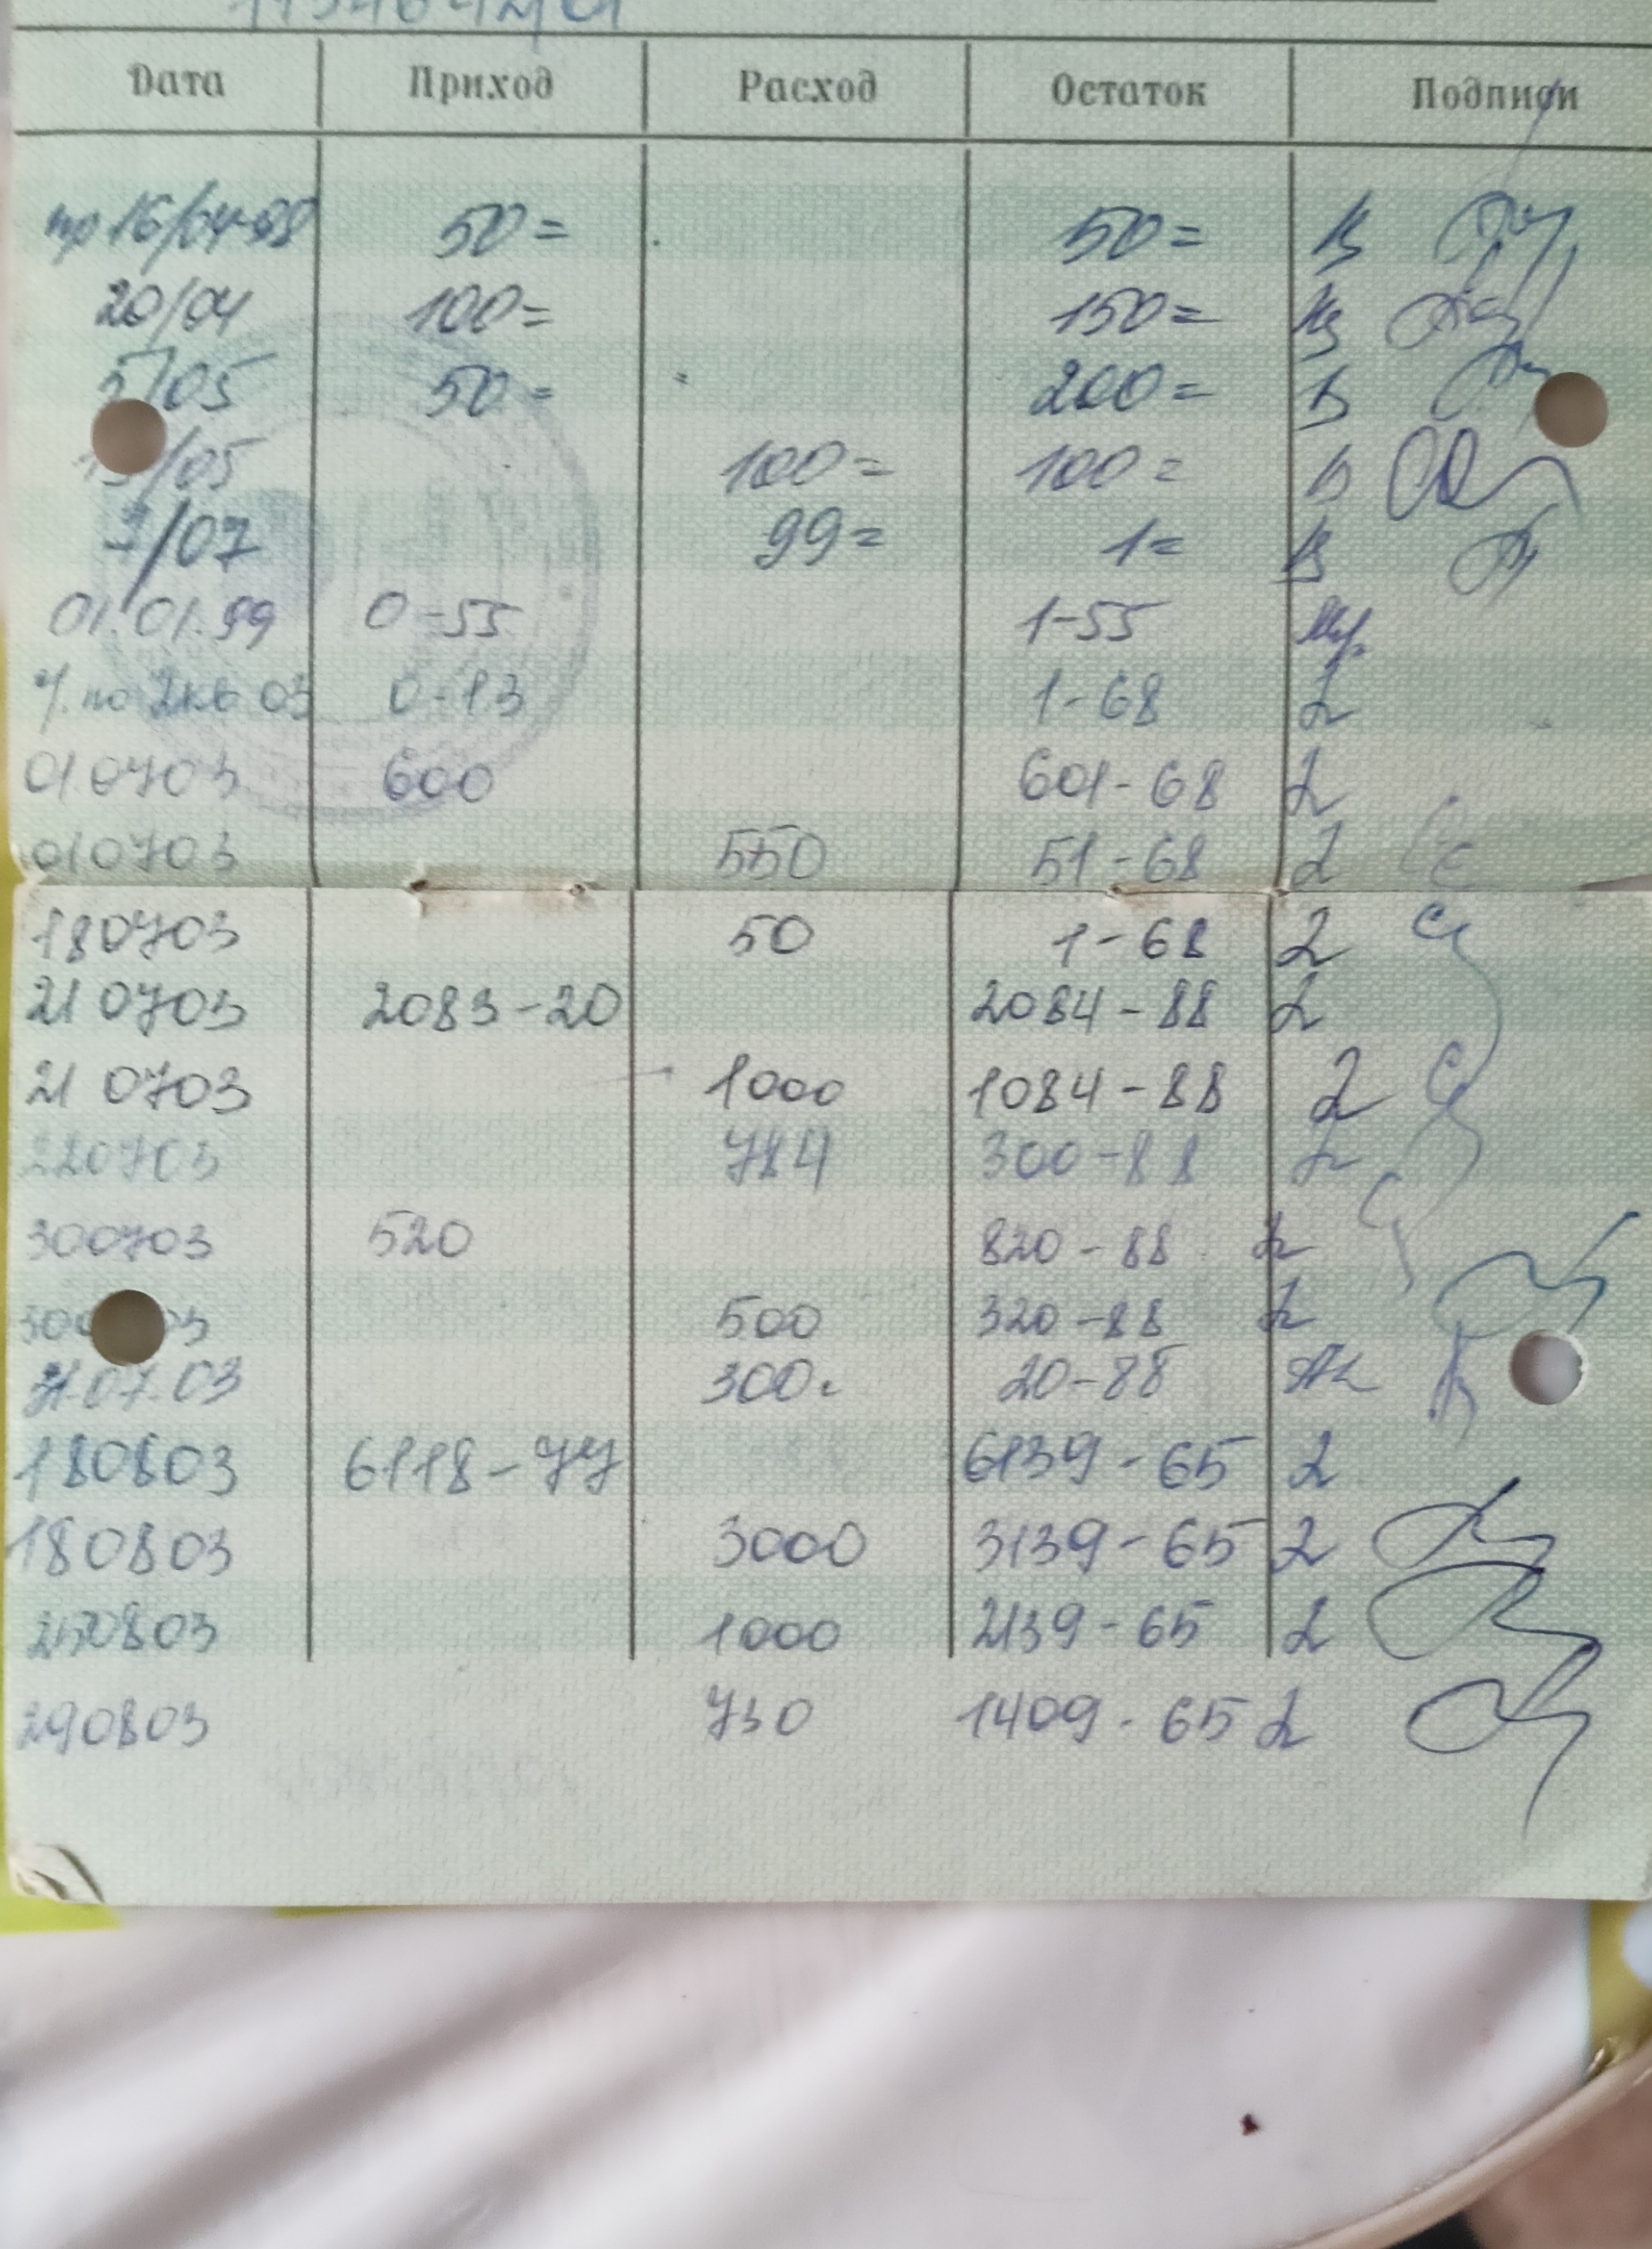 Дата Приход Расход Остаток Подписи
16/04-98 50= 50=
20/04 100= 150=
5/05 50= 200=
/05 100= 100=
7/07 99= 1=
01.01.99 0-55 1-55
% по 2кв 03 0-13 1-68
010703 600 601-68
010703 550 51-68
180703 50 1-68
210703 2083-20 2084-88
210703 1000 1084-88
220703 784 300-88
300703 520 820-88
500 320-88
31.07.03 300 20-88
180803 6118-77 6139-65
180803 3000 3139-65
250803 1000 2139-65
290803 730 1409-65